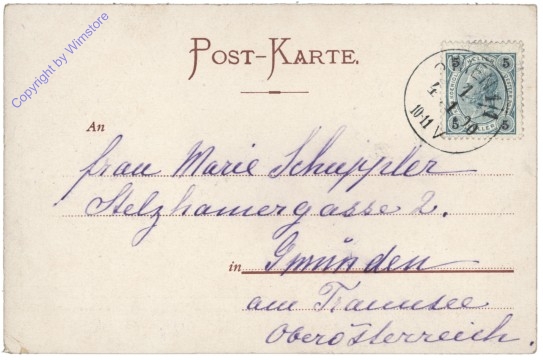 Copyright by Wimstore
POST-KARTE.
5 5
5 5
10-11 V
An
Frau Marie Schuppler
Stelzhamergasse 2.
in Gmünden
am Traunsee
Oberösterreich.